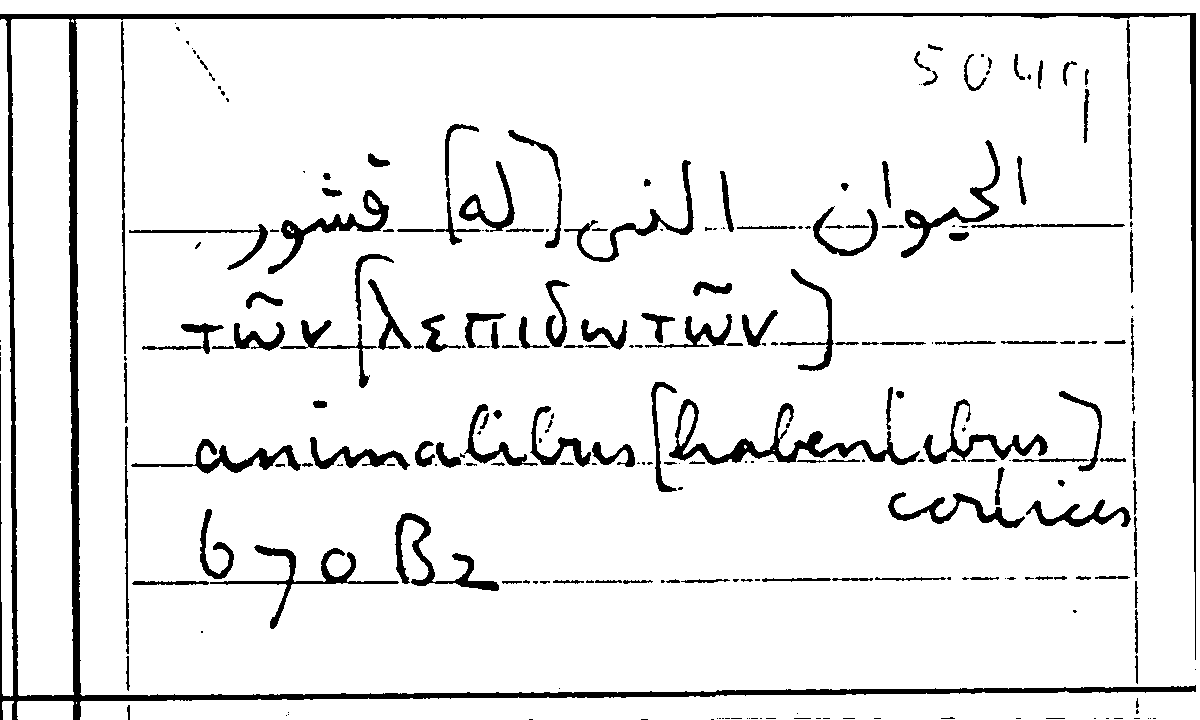 5049
الحيوان الذى [له] قشور
τῶν [λεπιδωτῶν]
animalibus [habentibus]
cortices
670 B2